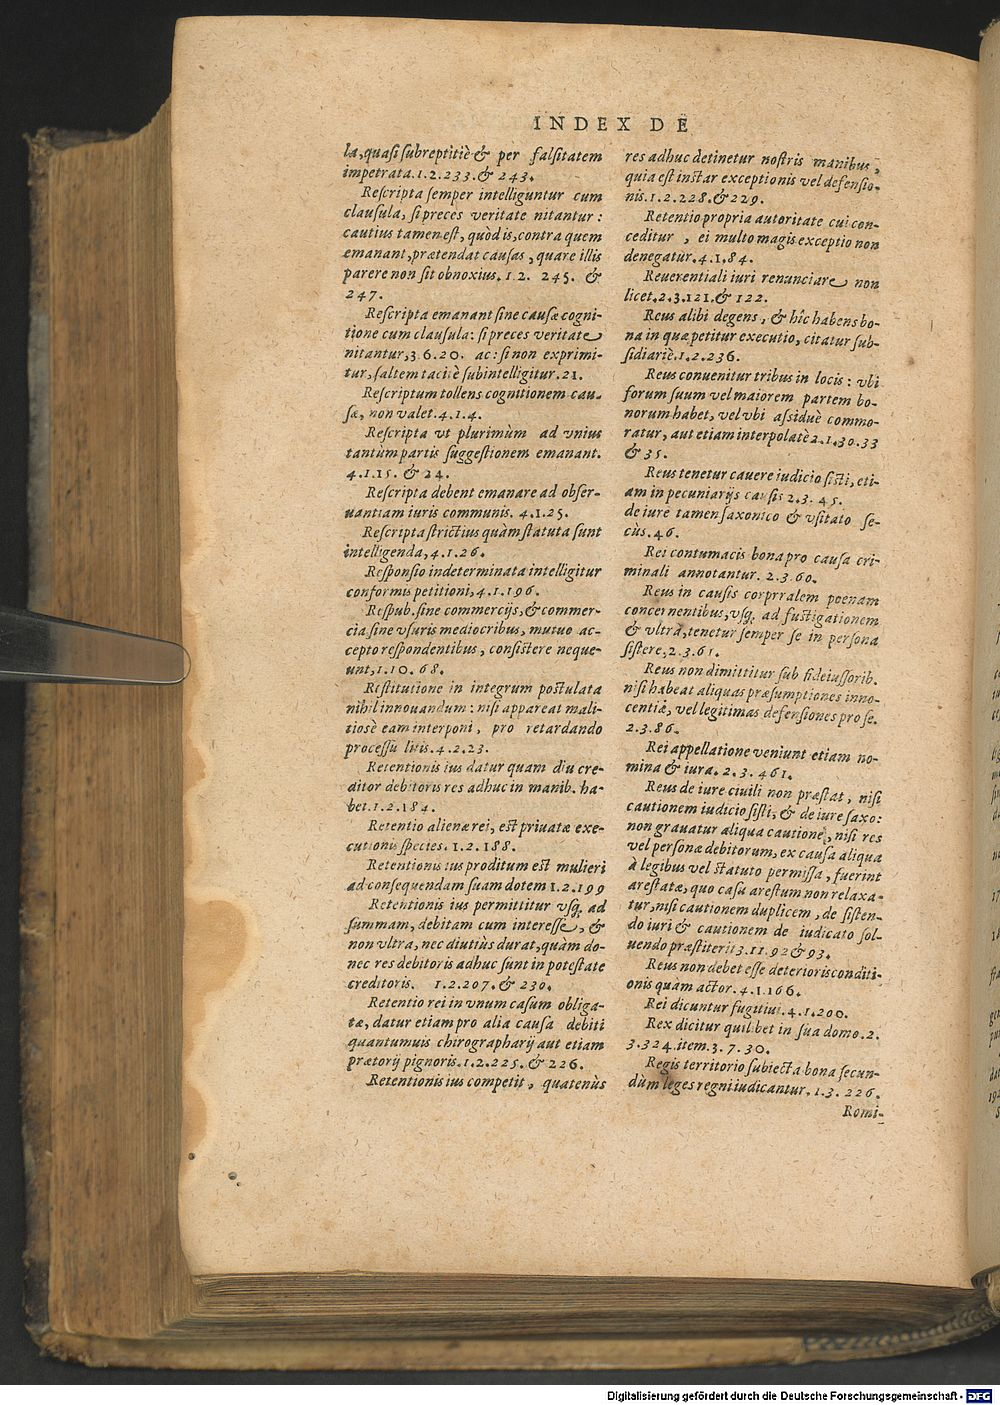 INDEX DE
la, quasi subreptitiè & per falsitatem
impetrata.1.2.233.& 243.
Rescripta semper intelliguntur cum
clausula, si preces veritate nitantur:
cautius tamen est, quòd is, contra quem
emanant, prætendat causas, quare illis
parere non sit obnoxius.1.2. 245. &
247.
Rescripta emanant sine causæ cogni-
tione cum clausula: si preces veritate
nitantur,3.6.20. ac: si non exprimi-
tur, saltem tacitè subintelligitur.21.
Rescriptum tollens cognitionem cau-
sæ, non valet.4.1.4.
Rescripta vt plurimùm ad vnius
tantùm partis suggestionem emanant.
4.1.15. & 24.
Rescripta debent emanare ad obser-
uantiam iuris communis. 4.1.25.
Rescripta strictius quàm statuta sunt
intelligenda,4.1.26.
Responsio indeterminata intelligitur
conformis petitioni,4.1.196.
Respub. sine commercijs, & commer-
cia sine vsuris mediocribus, mutuo ac-
cepto respondentibus, consistere neque-
unt,1.10.68.
Restitutione in integrum postulata
nihil innouandum: nisi appareat mali-
tiosè eam interponi, pro retardando
processu litis.4.2.23.
Retentionis ius datur quam diu cre-
ditor debitoris res adhuc in manib. ha-
bet.1.2.184.
Retentio alienæ rei, est priuatæ exe-
cutionis species. 1.2.188.
Retentionis ius proditum est mulieri
ad consequendam suam dotem 1.2.199
Retentionis ius permittitur vsq; ad
summam, debitam cum interesse, &
non vltra, nec diutiùs durat, quàm do-
nec res debitoris adhuc sunt in potestate
creditoris. 1.2.207.& 230.
Retentio rei in vnum casum obliga-
tæ, datur etiam pro alia causa debiti
quantumuis chirographarij aut etiam
prætorij pignoris.1.2.225. & 226.
Retentionis ius competit, quatenùs
res adhuc detinetur nostris manibus,
quia est instar exceptionis vel defensio-
nis.1.2.228.& 229.
Retentio propria autoritate cui con-
ceditur , ei multo magis exceptio non
denegatur.4.1.84.
Reuerentiali iuri renunciare non
licet.2.3.121.& 122.
Reus alibi degens, & hîc habens bo-
na in quæ petitur executio, citatur sub-
sidiariè.1.2.236.
Reus conuenitur tribus in locis: vbi
forum suum vel maiorem partem bo-
norum habet, vel vbi assiduè commo-
ratur, aut etiam interpolatè 2.1.30.33
& 35.
Reus tenetur cauere iudicio sisti, eti-
am in pecuniarijs causis 2.3.45.
de iure tamen saxonico & vsitato se-
cùs.46.
Rei contumacis bona pro causa cri-
minali annotantur. 2.3.60.
Reus in causis corprralem poenam
concernentibus, vsq; ad fustigationem
& vltra, tenetur semper se in persona
sistere,2.3.61.
Reus non dimittitur sub fideiussorib.
nisi habeat aliquas præsumptiones inno-
centiæ, vel legitimas defensiones pro se.
2.3.86.
Rei appellatione veniunt etiam no-
mina & iura. 2.3.461.
Reus de iure ciuili non præstat, nisi
cautionem iudicio sisti, & de iure saxo:
non grauatur aliqua cautione, nisi res
vel personæ debitorum, ex causa aliqua
à legibus vel statuto permissa, fuerint
arestatæ, quo casu arestum non relaxa-
tur, nisi cautionem duplicem, de sisten-
do iuri & cautionem de iudicato sol-
uendo præstiterit 3.11.92 & 93.
Reus non debet esse deterioris conditi-
onis quam actor.4.1.166.
Rei dicuntur fugitiui.4.1.200.
Rex dicitur quilibet in sua domo.2.
3.324.item.3.7.30.
Regis territorio subiecta bona secun-
dùm leges regni iudicantur.1.3.226.
Romi-
Digitalisierung gefördert durch die Deutsche Forschungsgemeinschaft - DFG